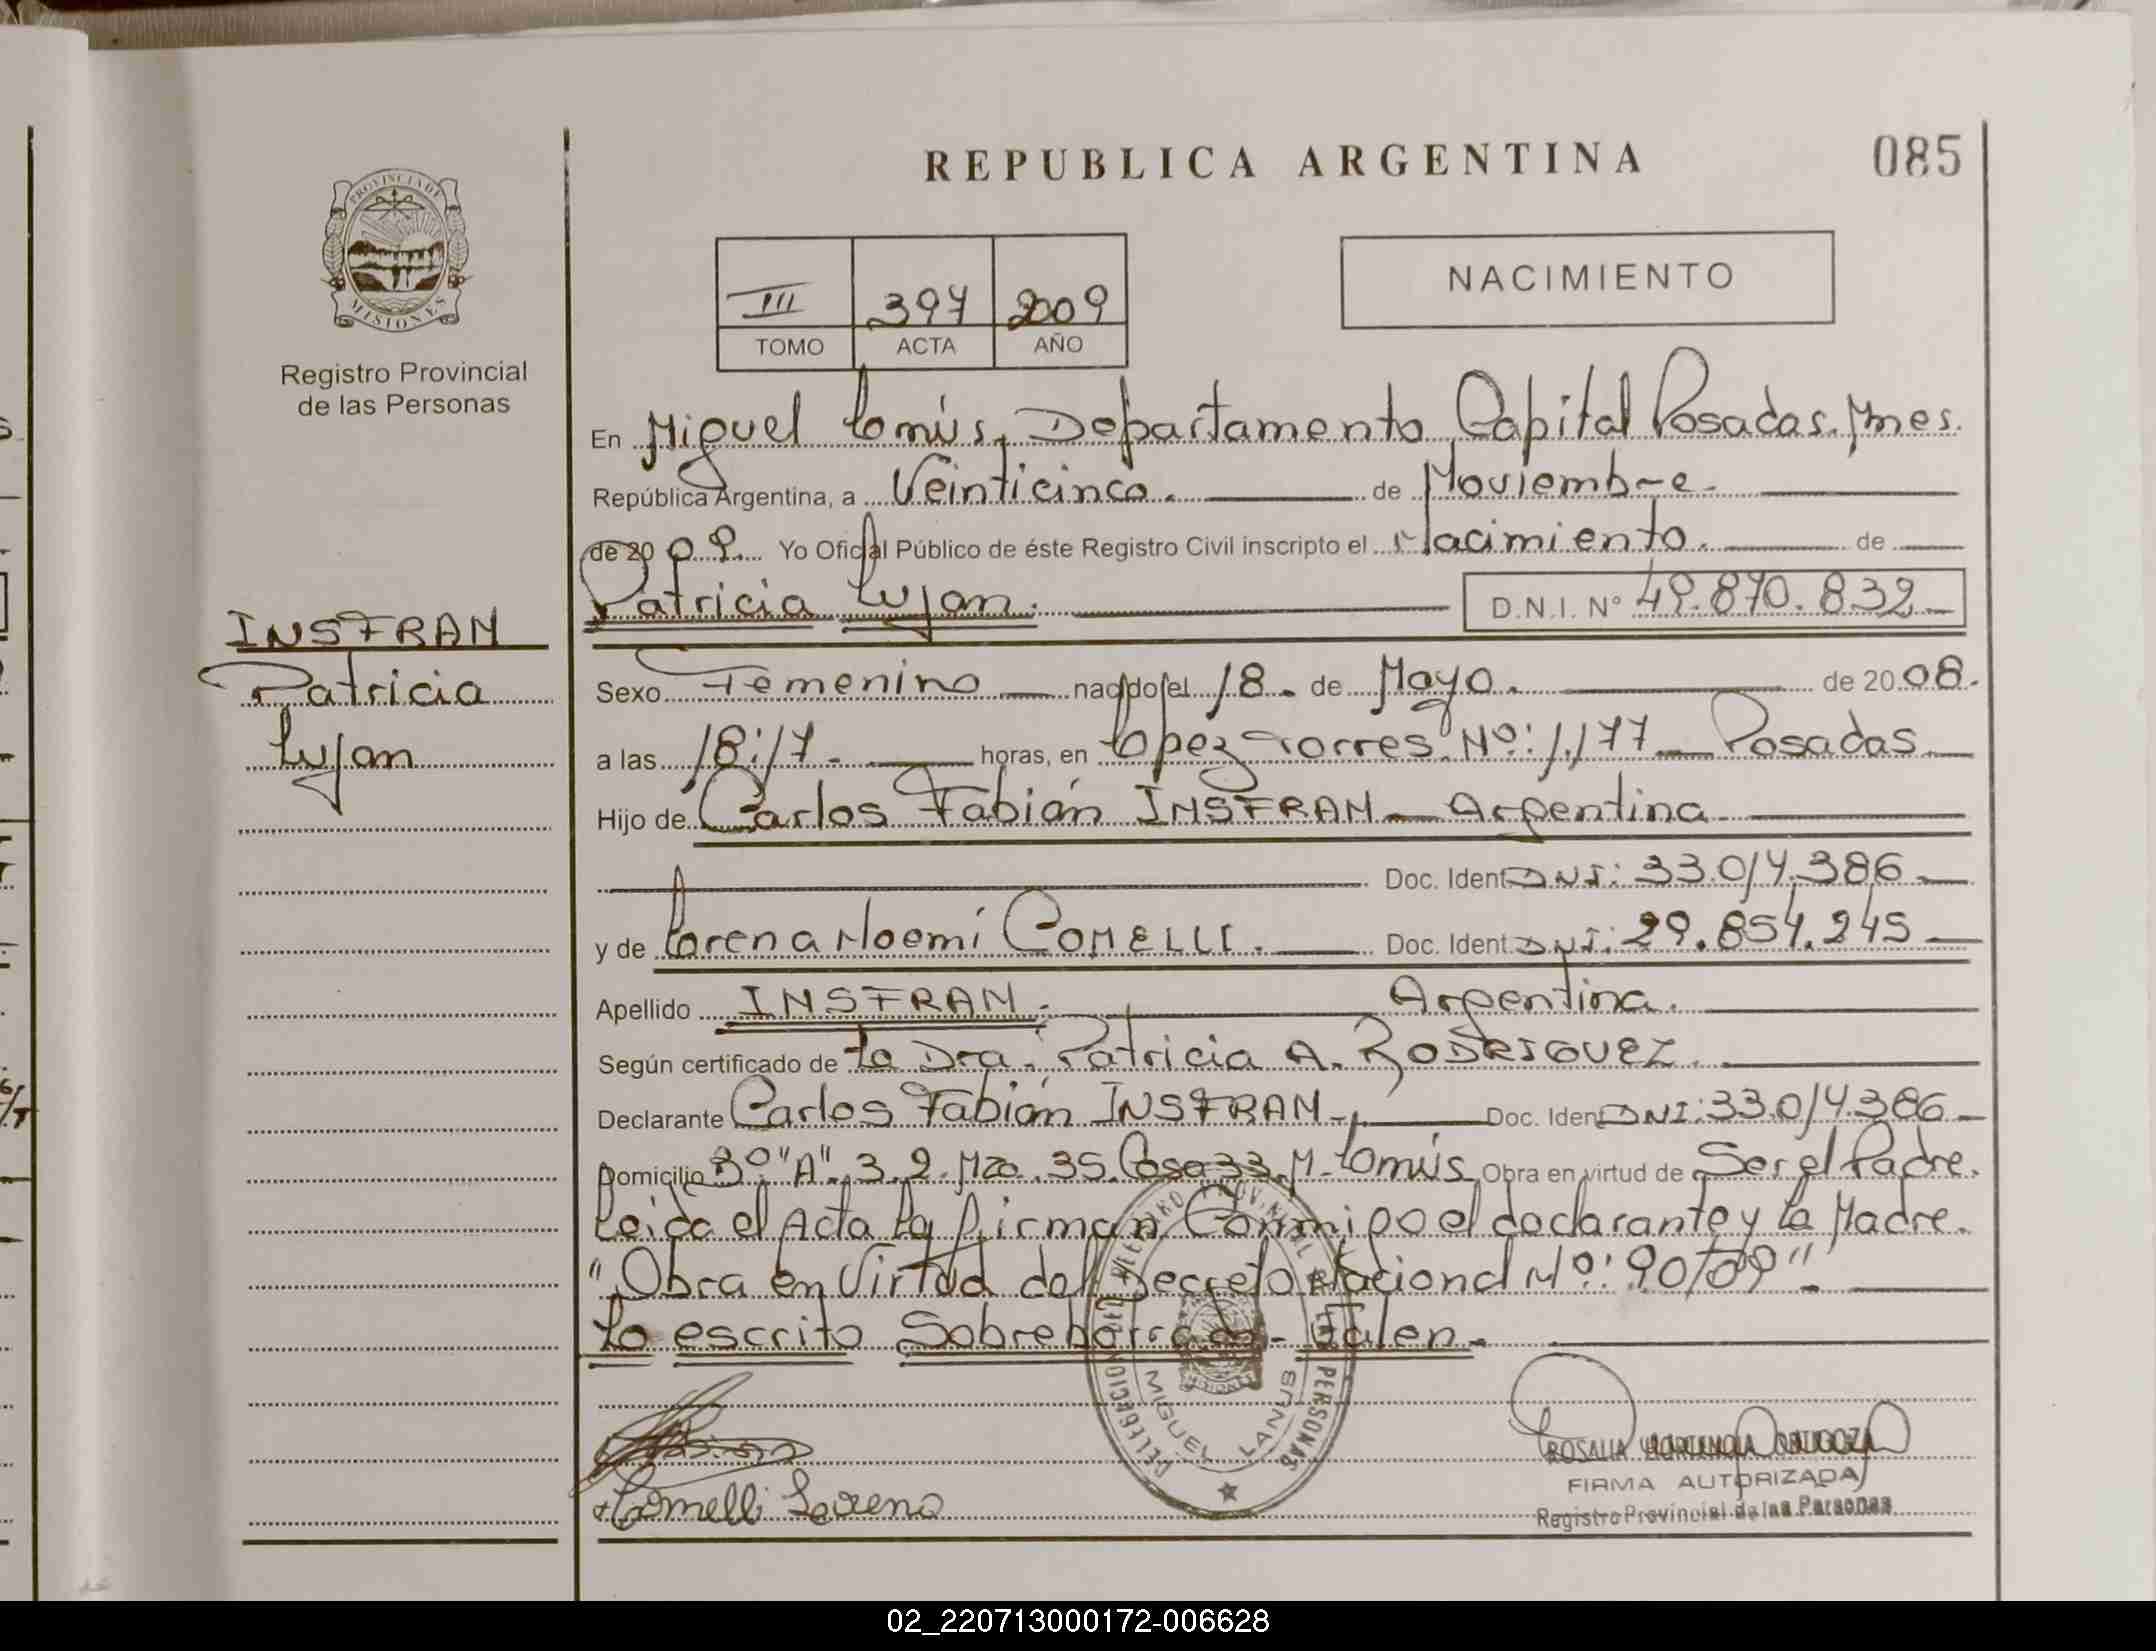 REPUBLICA ARGENTINA
085
PROVINCIA DE
MISIONES
Registro Provincial
de las Personas
III 397 2009
TOMO ACTA AÑO
NACIMIENTO
En Miguel Lanús, Departamento Capital Posadas. Mnes.
República Argentina, a Veinticinco. de Noviembre.
de 2009. Yo Oficial Público de éste Registro Civil inscripto el Nacimiento. de
Patricia Lujan. D.N.I. Nº 49.870.832
INSFRAN
Patricia
Lujan
Sexo Femenino nacido el 18. de Mayo. de 2008.
a las 18:17. horas, en Lopez Torres Nº: 1.177 Posadas
Hijo de Carlos Fabián INSFRAN Argentina
Doc. Ident DNI: 33.014.386
y de Lorena Noemí COMELLI. Doc. Ident. DNI: 29.854.245
Apellido INSFRAN. Argentina.
Según certificado de La Dra. Patricia A. RODRIGUEZ.
Declarante Carlos Fabián INSFRAN Doc. Ident DNI: 33.014.386
Domicilio "A" 3.2. Mza. 35. Casa 33. M. Lanús Obra en virtud de Ser el Padre.
Leida el Acta la firman Conmigo el declarante y la Madre.
"Obra en Virtud del Decreto Nacional Nº: 90/09".
Lo escrito Sobreborrado - Valen.
MIGUEL LANUS
Comelli Lorena
ROSALIA
FIRMA AUTORIZADA
Registro Provincial de las Personas
02_220713000172-006628